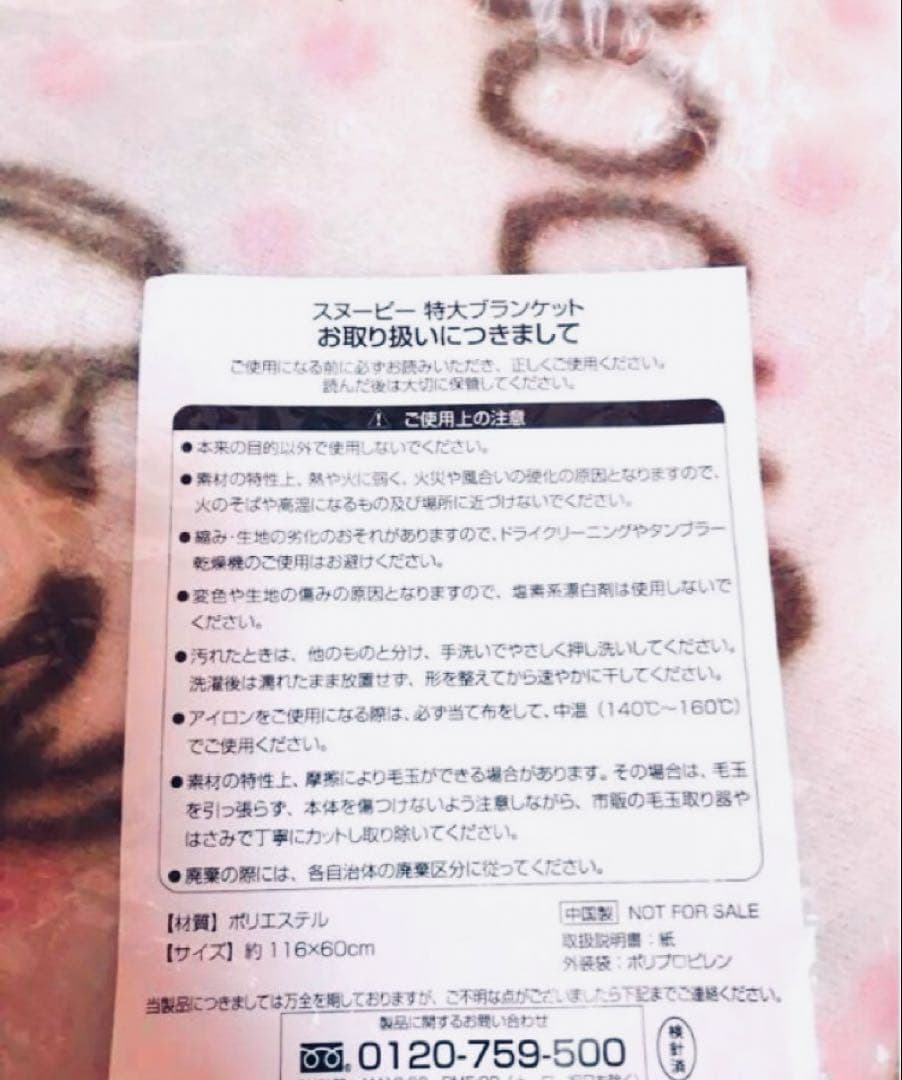 スヌーピー 特大ブランケット
お取り扱いにつきまして
ご使用になる前に必ずお読みいただき、正しくご使用ください。
読んだ後は大切に保管してください。
ご使用上の注意
●本来の目的以外で使用しないでください。
●素材の特性上、熱や火に弱く、火災や風合いの硬化の原因となりますので、
火のそばや高温になるもの及び場所に近づけないでください。
●縮み・生地の劣化のおそれがありますので、ドライクリーニングやタンブラー
乾燥機のご使用はお避けください。
●変色や生地の傷みの原因となりますので、塩素系漂白剤は使用しないで
ください。
●汚れたときは、他のものと分け、手洗いでやさしく押し洗いしてください。
洗濯後は濡れたまま放置せず、形を整えてから速やかに干してください。
●アイロンをご使用になる際は、必ず当て布をして、中温（140℃～160℃）
でご使用ください。
●素材の特性上、摩擦により毛玉ができる場合があります。その場合は、毛玉
を引っ張らず、本体を傷つけないよう注意しながら、市販の毛玉取り器や
はさみで丁寧にカットし取り除いてください。
●廃棄の際には、各自治体の廃棄区分に従ってください。
【材質】ポリエステル
【サイズ】約 116×60cm
中国製 NOT FOR SALE
取扱説明書：紙
外装袋：ポリプロピレン
当製品につきましては万全を期しておりますが、ご不明な点がございましたら下記までご連絡ください。
製品に関するお問い合わせ
0120-759-500
検針済